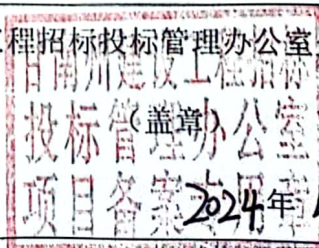 工程招标投标管理办公室
甘南州建设工程招标
投标管理办公室
（盖章）
项目备案专用章
2024年